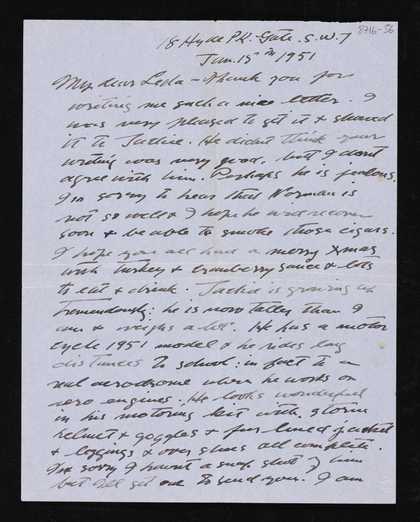 8716-56
18 Hyde PK. Gate. S.W.7
Jan. 15th 1951
My dear Leda - Thank you for
writing me such a nice letter. I
was very pleased to get it & showed
it to Jackie. He didnt think your
writing was very good, but I dont
agree with him. Perhaps he is jealous.
I'm sorry to hear that Norman is
not so well & I hope he will recover
soon & be able to smoke those cigars.
I hope you all had a merry Xmas
with turkey & cranberry sauce & lots
to eat & drink. Jackie is growing up
tremendously: he is now taller than I
am & weighs a lot. He has a motor
cycle 1951 model & he rides long
distances to school: in fact to a
real aerodrome where he works on
aero engines. He looks wonderful
in his motoring kit with storm
helmet & goggles & fur lined jacket
& leggings & over shoes all complete.
I'm sorry I havnt a snap shot of him
but I'll get one to send you. I am